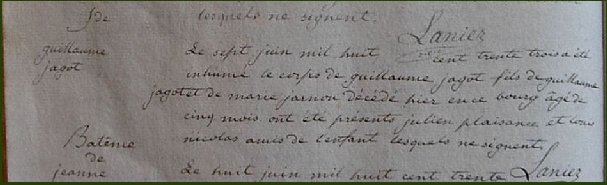 Sde
lesquels ne signent.
Laniez
guillaume
jagot
Le sept juin mil huit cent trente trois a été
inhumé le corps de guillaume jagot fils de guillaume
jagot et de marie jarnon décédé hier en ce bourg âgé de
cinq mois ont été présents julien plaisance et louis
nicolas amis de l'enfant lesquels ne signent.
Laniez
Batême
de
jeanne
Le huit juin mil huit cent trente